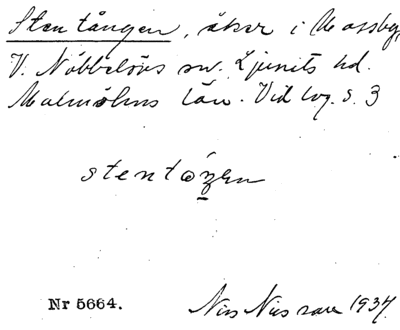 Sten tången, åker i Mossby,
V. Nöbbelövs sn. Ljunits hd.
Malmöhus län. Vid lvg. s. 3
stentåŋen
Nr 5664. Nils Nilsson 1937.